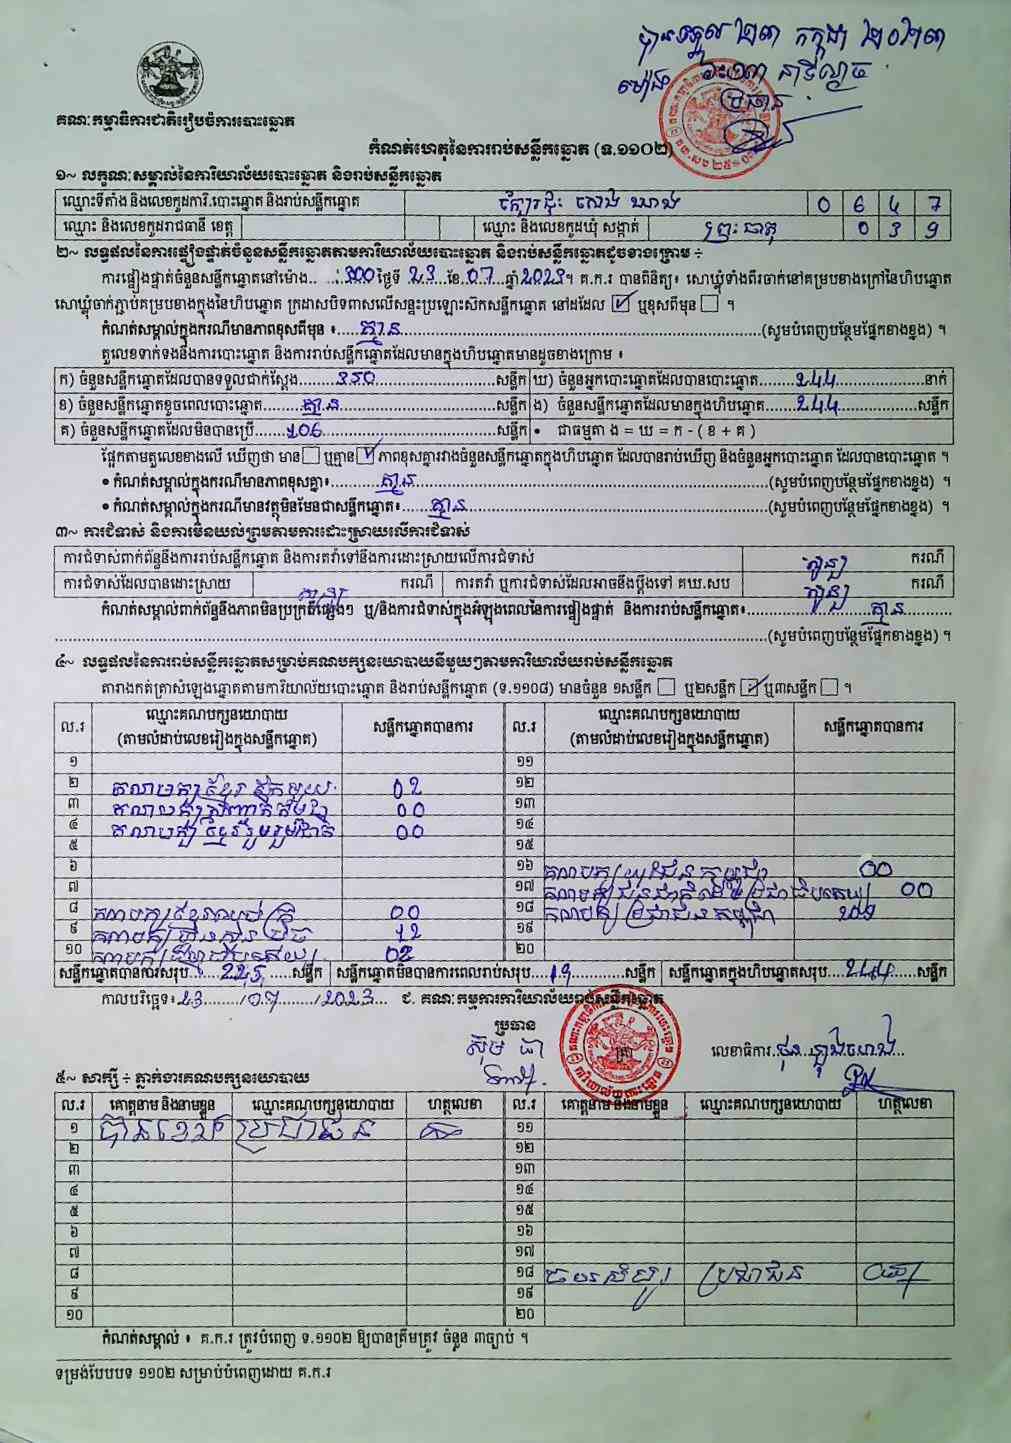 បានទទួល ២៣ កក្កដា ២០២៣
ម៉ោង នាទីល្ងាច
ប្រធាន
គណៈកម្មាធិការជាតិរៀបចំការបោះឆ្នោត
កំណត់ហេតុនៃការរាប់សន្លឹកឆ្នោត (ទ.១១០២)
១~ លក្ខណៈសម្គាល់នៃការិយាល័យបោះឆ្នោត និងរាប់សន្លឹកឆ្នោត
ឈ្មោះទីតាំង និងលេខកូដការិ.បោះឆ្នោត និងរាប់សន្លឹកឆ្នោត 0 6 4 7
ឈ្មោះ និងលេខកូដរាជធានី ខេត្ត ឈ្មោះ និងលេខកូដឃុំ សង្កាត់ ព្រះធាតុ 0 3 9
២~ លទ្ធផលនៃការផ្ទៀងផ្ទាត់ចំនួនសន្លឹកឆ្នោតតាមការិយាល័យបោះឆ្នោត និងរាប់សន្លឹកឆ្នោតដូចខាងក្រោម ÷
ការផ្ទៀងផ្ទាត់ចំនួនសន្លឹកឆ្នោតនៅម៉ោង.. 300 ថ្ងៃទី 23 ខែ 07 ឆ្នាំ 2023។ គ.ក.រ បានពិនិត្យ៖ សោឃ្លុំទាំងពីរចាក់នៅគម្របខាងក្រៅនៃហិបឆ្នោត
សោឃ្លុំចាក់ភ្ជាប់គម្របខាងក្នុងនៃហិបឆ្នោត ក្រដាសបិទពាសលើសន្ទះប្រឡោះស៊កសន្លឹកឆ្នោត នៅដដែល ☑ ឬខុសពីមុន ☐ ។
កំណត់សម្គាល់ក្នុងករណីមានភាពខុសពីមុន ៖ គ្មាន (សូមបំពេញបន្ថែមផ្នែកខាងខ្នង) ។
តួលេខទាក់ទងនឹងការបោះឆ្នោត និងការរាប់សន្លឹកឆ្នោតដែលមានក្នុងហិបឆ្នោតមានដូចខាងក្រោម ៖
ក) ចំនួនសន្លឹកឆ្នោតដែលបានទទួលជាក់ស្តែង 350 សន្លឹក ឃ) ចំនួនអ្នកបោះឆ្នោតដែលបានបោះឆ្នោត 244 នាក់
ខ) ចំនួនសន្លឹកឆ្នោតខូចពេលបោះឆ្នោត គ្មាន សន្លឹក ង) ចំនួនសន្លឹកឆ្នោតដែលមានក្នុងហិបឆ្នោត 244 សន្លឹក
គ) ចំនួនសន្លឹកឆ្នោតដែលមិនបានប្រើ 106 សន្លឹក • ជាធម្មតា ង = ឃ = ក - ( ខ + គ )
ផ្អែកតាមតួលេខខាងលើ ឃើញថា មាន ☐ ឬគ្មាន ☑ ភាពខុសគ្នារវាងចំនួនសន្លឹកឆ្នោតក្នុងហិបឆ្នោត ដែលបានរាប់ឃើញ និងចំនួនអ្នកបោះឆ្នោត ដែលបានបោះឆ្នោត ។
• កំណត់សម្គាល់ក្នុងករណីមានភាពខុសគ្នា៖ គ្មាន (សូមបំពេញបន្ថែមផ្នែកខាងខ្នង) ។
• កំណត់សម្គាល់ក្នុងករណីមានវត្ថុមិនមែនជាសន្លឹកឆ្នោត៖ គ្មាន (សូមបំពេញបន្ថែមផ្នែកខាងខ្នង) ។
៣~ ការជំទាស់ និងការមិនយល់ព្រមតាមការដោះស្រាយលើការជំទាស់
ការជំទាស់ពាក់ព័ន្ធនឹងការរាប់សន្លឹកឆ្នោត និងការតវ៉ាទៅនឹងការដោះស្រាយលើការជំទាស់ សូន្យ ករណី
ការជំទាស់ដែលបានដោះស្រាយ សូន្យ ករណី ការតវ៉ា ឬការជំទាស់ដែលអាចនឹងប្តឹងទៅ គឃ.សប សូន្យ ករណី
កំណត់សម្គាល់ពាក់ព័ន្ធនឹងភាពមិនប្រក្រតីផ្សេងៗ ឬ/និងការជំទាស់ក្នុងអំឡុងពេលនៃការផ្ទៀងផ្ទាត់ និងការរាប់សន្លឹកឆ្នោត៖ គ្មាន
(សូមបំពេញបន្ថែមផ្នែកខាងខ្នង) ។
៤~ លទ្ធផលនៃការរាប់សន្លឹកឆ្នោតសម្រាប់គណបក្សនយោបាយនីមួយៗតាមការិយាល័យរាប់សន្លឹកឆ្នោត
តារាងកត់ត្រាសំឡេងឆ្នោតតាមការិយាល័យបោះឆ្នោត និងរាប់សន្លឹកឆ្នោត (ទ.១១០៨) មានចំនួន ១សន្លឹក ☐ ឬ២សន្លឹក ☑ ឬ៣សន្លឹក ☐ ។
ល.រ ឈ្មោះគណបក្សនយោបាយ (តាមលំដាប់លេខរៀងក្នុងសន្លឹកឆ្នោត) សន្លឹកឆ្នោតបានការ ល.រ ឈ្មោះគណបក្សនយោបាយ (តាមលំដាប់លេខរៀងក្នុងសន្លឹកឆ្នោត) សន្លឹកឆ្នោតបានការ
១ ១១
២ គណបក្សខ្មែរ តែមួយ 02 ១២
៣ គណបក្ស 00 ១៣
៤ គណបក្សខ្មែររួបរួមជាតិ 00 ១៤
៥ ១៥
៦ ១៦ គណបក្សយុវជនកម្ពុជា 00
៧ ១៧ គណបក្សជនជាតិដើមប្រជាធិបតេយ្យ 00
៨ គណបក្សខ្មែរឈប់ក្រី 00 ១៨ គណបក្សប្រជាជនកម្ពុជា 209
៩ គណបក្សហ្វ៊ុនស៊ិនប៉ិច 12 ១៩
១០ 02 ២០
សន្លឹកឆ្នោតបានការសរុប 225 សន្លឹក សន្លឹកឆ្នោតមិនបានការពេលរាប់សរុប 19 សន្លឹក សន្លឹកឆ្នោតក្នុងហិបឆ្នោតសរុប 244 សន្លឹក
កាលបរិច្ឆេទ៖ 23 / 07 / 2023 ជ. គណៈកម្មការការិយាល័យរាប់សន្លឹកឆ្នោត
ប្រធាន
ស៊ុម ធា
លេខាធិការ
៥~ សាក្សី ÷ ភ្នាក់ងារគណបក្សនយោបាយ
ល.រ គោត្តនាម និងនាមខ្លួន ឈ្មោះគណបក្សនយោបាយ ហត្ថលេខា ល.រ គោត្តនាម និងនាមខ្លួន ឈ្មោះគណបក្សនយោបាយ ហត្ថលេខា
១ ប្រជាជន ១១
២ ១២
៣ ១៣
៤ ១៤
៥ ១៥
៦ ១៦
៧ ១៧
៨ ១៨ ប្រជាជន
៩ ១៩
១០ ២០
កំណត់សម្គាល់ ៖ គ.ក.រ ត្រូវបំពេញ ទ.១១០២ ឱ្យបានត្រឹមត្រូវ ចំនួន ៣ច្បាប់ ។
ទម្រង់បែបបទ ១១០២ សម្រាប់បំពេញដោយ គ.ក.រ